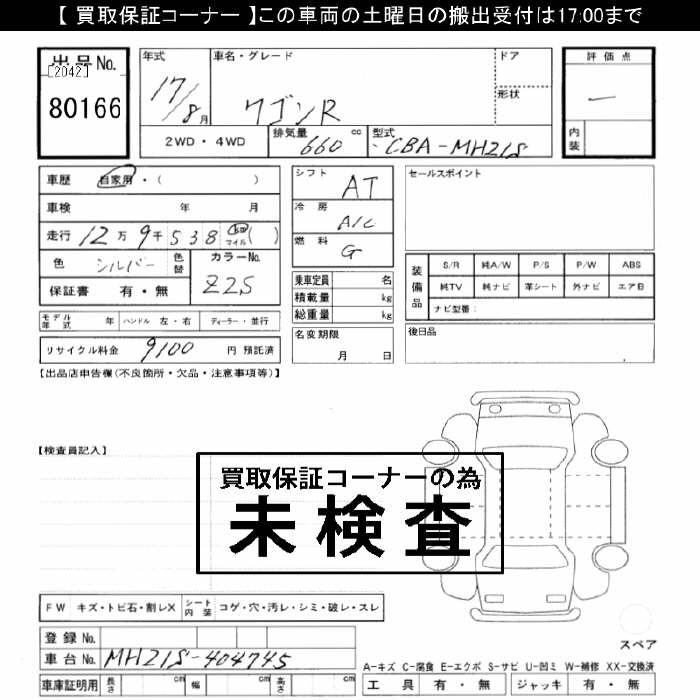 【 買取保証コーナー 】この車両の土曜日の搬出受付は17:00まで
出品No.
[2042]
80166
年式
17/8月
車名・グレード
ワゴンR
ドア
形状
評価点
—
内装
2WD・4WD
排気量 660 cc
型式 CBA-MH21S
車歴 自家用・( )
車検 年 月
走行 12万9千538 km マイル ( )
色 シルバー 色替
カラーNo. Z2S
保証書 有・無
シフト AT
冷房 A/C
燃料 G
乗車定員 名
積載量 kg
総重量 kg
セールスポイント
装備品
S/R 純A/W P/S P/W ABS
純TV 純ナビ 革シート 外ナビ エアB
ナビ型番:
モデル年式 年 ハンドル 左・右 ディーラー・並行
名変期限 月 日
後日品
リサイクル料金 9100 円 預託済
【出品店申告欄(不良箇所・欠品・注意事項等)】
【検査員記入】
買取保証コーナーの為
未検査
FW キズ・トビ石・割レX シート内装 コゲ・穴・汚レ・シミ・破レ・スレ
登録No.
車台No. MH21S-404745
車庫証明用 長さ cm 幅 cm 高さ cm
スペア
A-キズ C-腐食 E-エクボ S-サビ U-凹ミ W-補修 XX-交換済
工具 有・無 ジャッキ 有・無